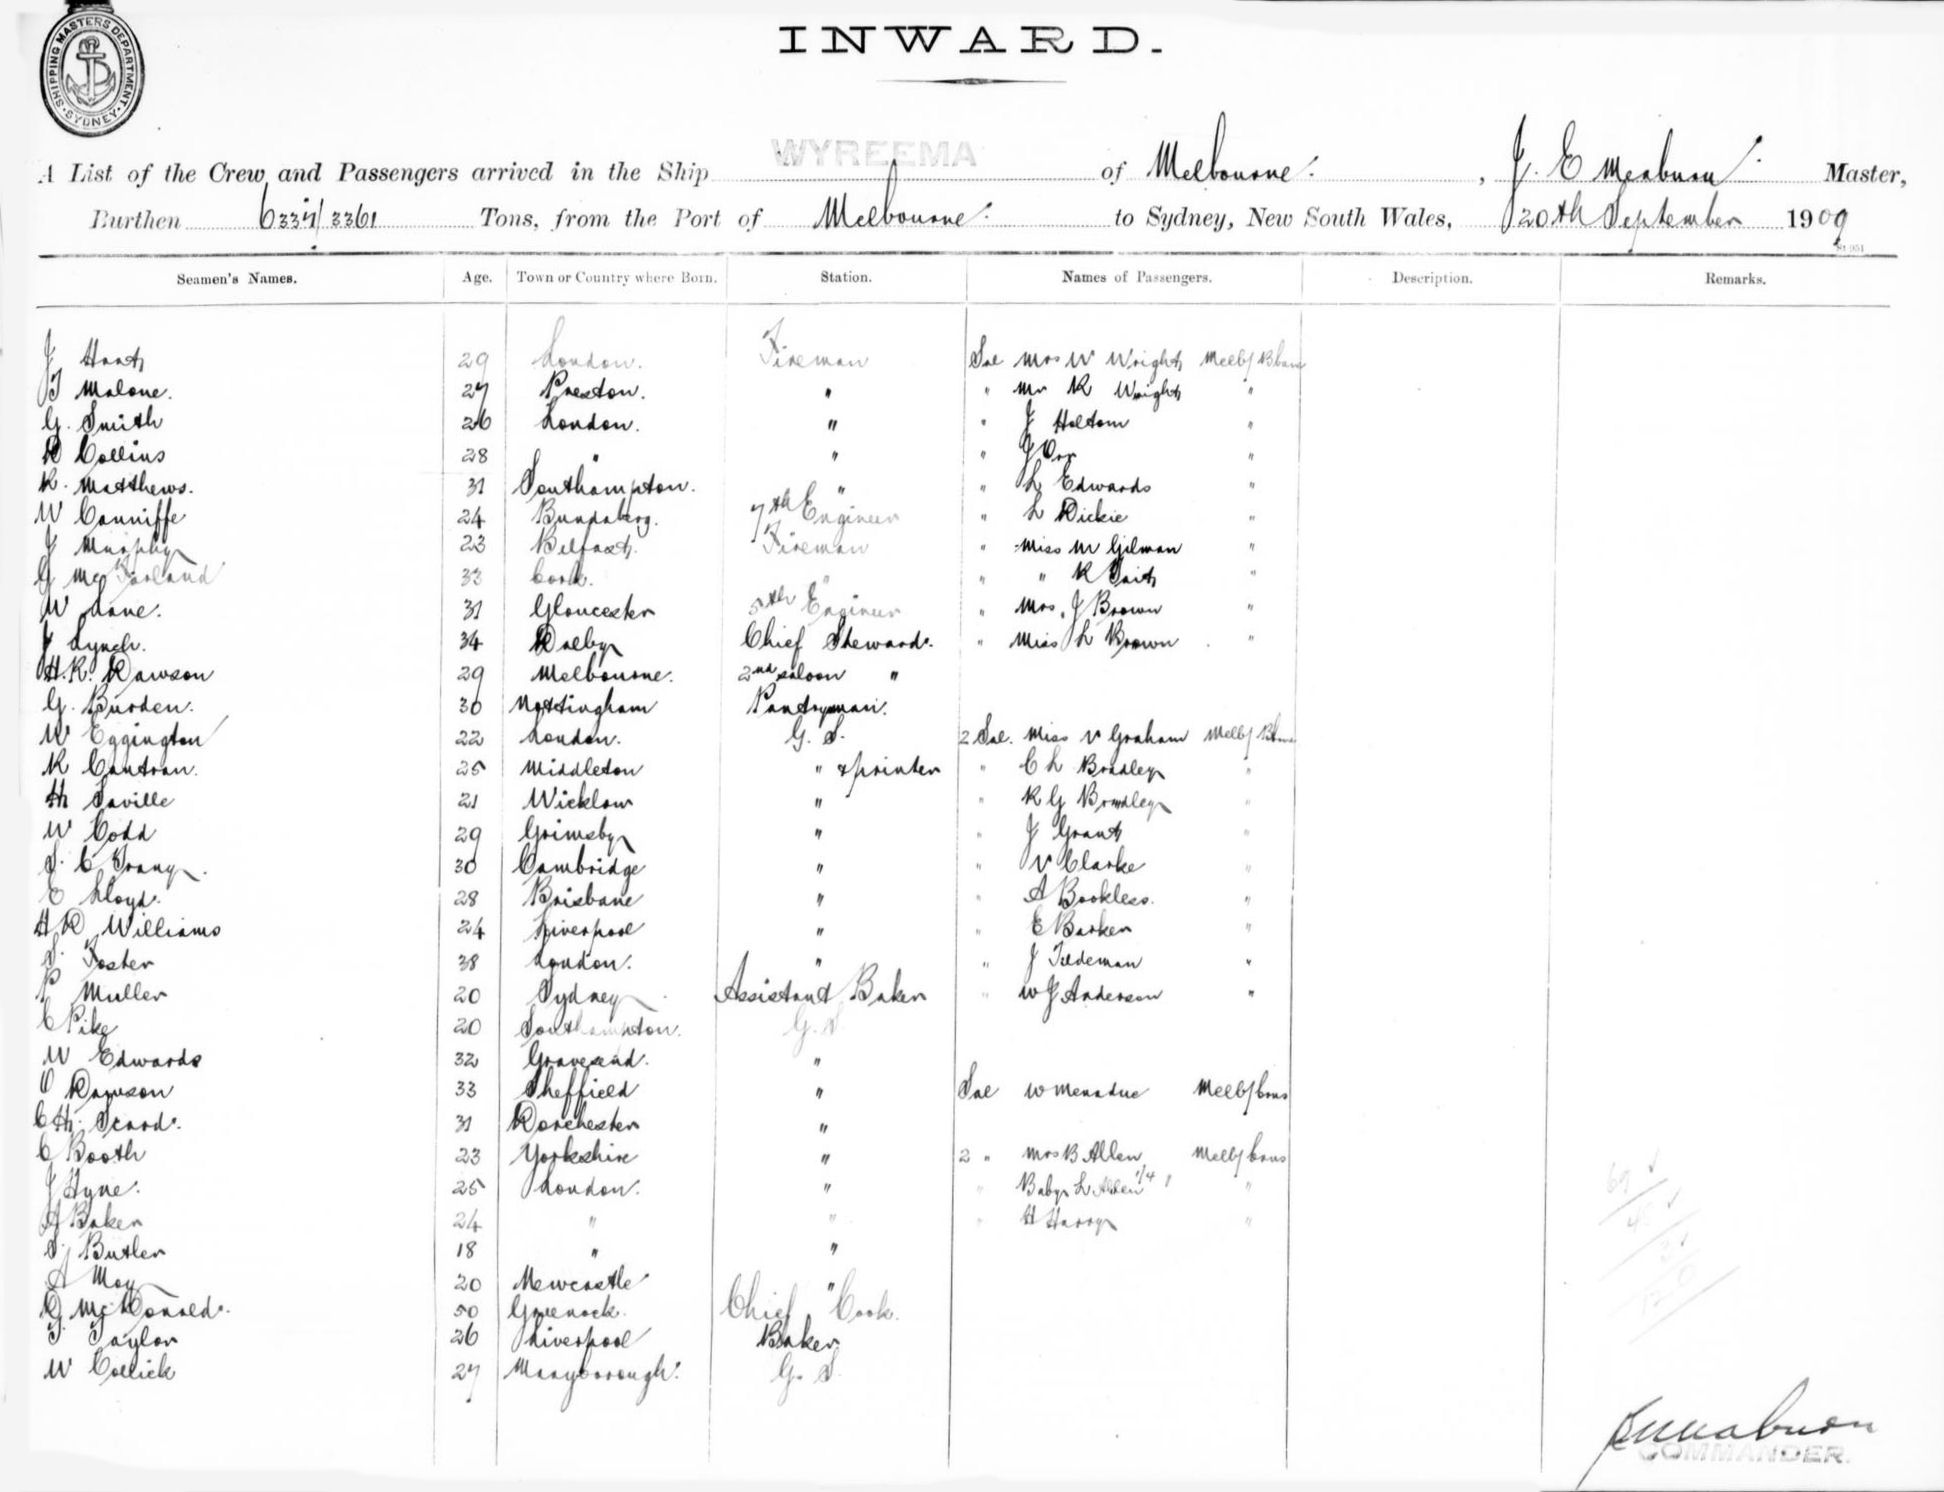 SHIPPING MASTERS DEPARTMENT. SYDNEY
INWARD.
A List of the Crew and Passengers arrived in the Ship WYREEMA of Melbourne, J. E Meaburn Master,
Burthen 6337/3361 Tons, from the Port of Melbourne to Sydney, New South Wales, 20th September 1909
St 951
Seamen's Names. Age. Town or Country where Born. Station. Names of Passengers. Description. Remarks.
J 29 London. Fireman Sal Mrs W Wright Melb/Bbane
T Malone. 27 Preston. " " Mr R Wright "
G. Smith 26 London. " " J Holtom "
D Collins 28 " " " J Orr "
R. Matthews. 31 Southampton. " " L Edwards "
W Cunniffe 24 Bundaberg. 7th Engineer " L Dickie "
J Murphy 23 Belfast. Fireman " Miss M Gilman "
G McFarland 33 Cork. " " " R Tait "
W Lane. 31 Gloucester 5th Engineer " Mrs. J Brown "
J Lynch. 34 Dalby Chief Steward. " Miss L Brown "
H. R. Dawson 29 Melbourne. 2nd saloon "
G. Burden. 30 Nottingham Pantryman.
W Eggington 22 London. G. S. 2 Sal. Miss V Graham Melb/Bbane
R Cantran. 25 Middleton " & printer " C L Bradley "
H Saville 21 Wicklow " " R G Bradley "
W Codd 29 Grimsby " " J Grant "
S. C Trany. 30 Cambridge " " V Clarke "
E Lloyd. 28 Brisbane " " A Bookless. "
H D Williams 24 Liverpool " " E Barker "
S. Foster 38 London. " " J Tiedeman "
P Muller 20 Sydney Assistant Baker " W J Anderson "
C Pike 20 Southampton. G. S.
W Edwards 32 Gravesend. "
O Dawson 33 Sheffield " Sal W Menadue Melb/Cns
C H. Scard. 31 Dorchester "
C Booth 23 Yorkshire " 2 " Mrs B Allen Melb/Cns
J Hyne. 25 London. " " Baby L Allen 1/4 "
A Baker 24 " " " H Harry "
S. Butler 18 " "
A May 20 Newcastle "
D. McDonald. 50 Greenock. Chief Cook.
T. Taylor 26 Liverpool Baker
W Collick 27 Maryborough. G. S.
69
120
COMMANDER.